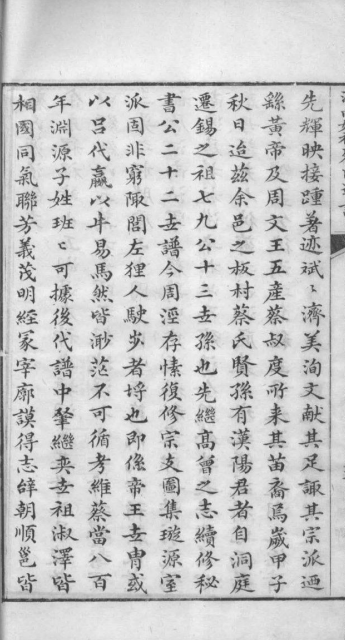 先輝映接踵著迹斌〻濟美洵文献其足諏其宗派迺
繇黃帝及周文王五產蔡叔度所来其苗裔焉歲甲子
秋日迨茲余邑之板村蔡氏賢孫有漢陽君者自洞庭
遷錫之祖七九公十三世孫也先繼高曾之志續修秘
書公二十二世譜今周涇存愫復修宗支圖集璇源室
派固非窮陬閭左狸人駛步者埒也即係帝王世冑或
以呂代嬴以牛易馬然皆渺茫不可循考維蔡當八百
年淵源子姓班〻可據後代譜中肇繼奕世祖淑澤皆
相國同氣聯芳義茂明經冢宰廓謨得志辭朝順邕皆